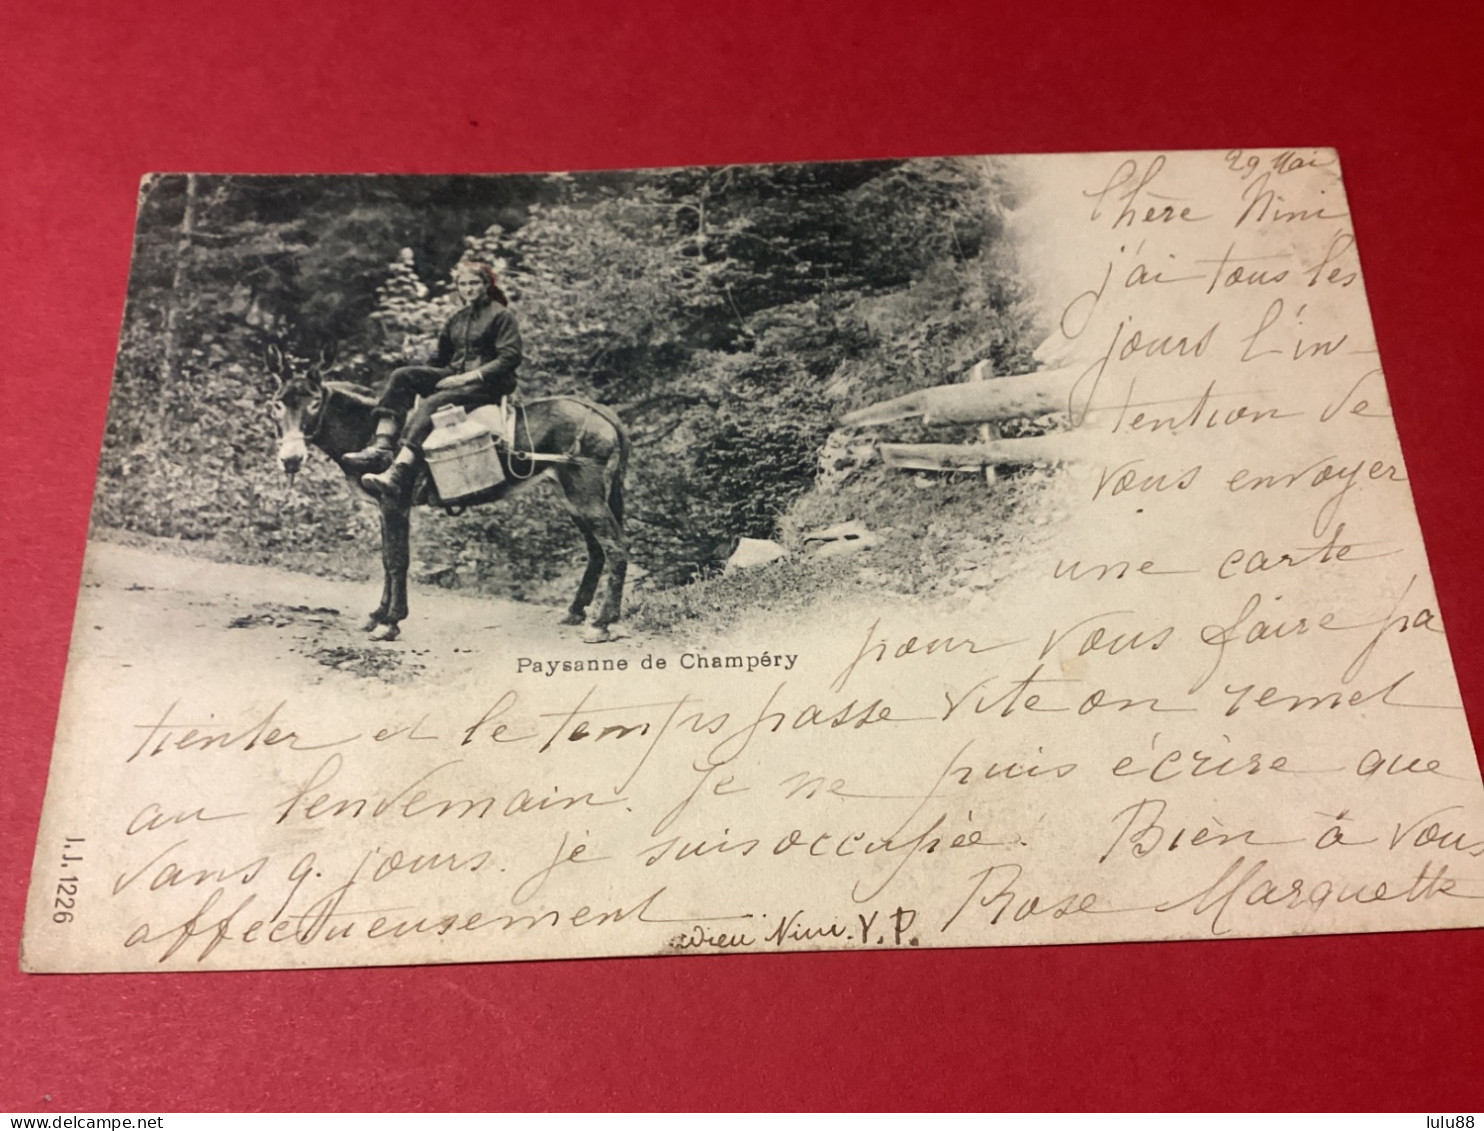 29 Mai
Chère Nini
j'ai tous les
jours l'in-
tention de
vous envoyer
une carte
pour vous faire pa
Paysanne de Champéry
tienter et le temps passe vite on remet
au lendemain. Je ne puis écrire que
dans q. jours. je suis occupée. Bien à vous
affectueusement Rose Marquette
Adieu Nini. Y. P.
J.J. 1226
lulu88
delcampe.net